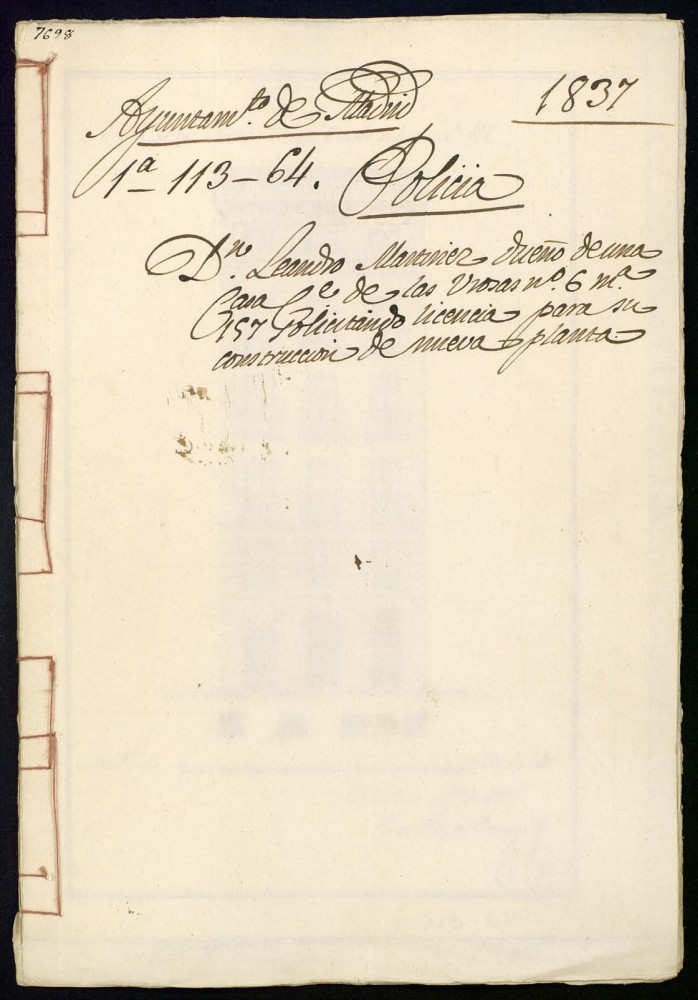 7698
Ayuntam.to de Madrid 1837
1ª 113-64. Policia
D.n Leandro Martinez dueño de una
Casa C.e de las Urosas nº 6 m.a
157 Solicitando licencia para su
construccion de nueva planta